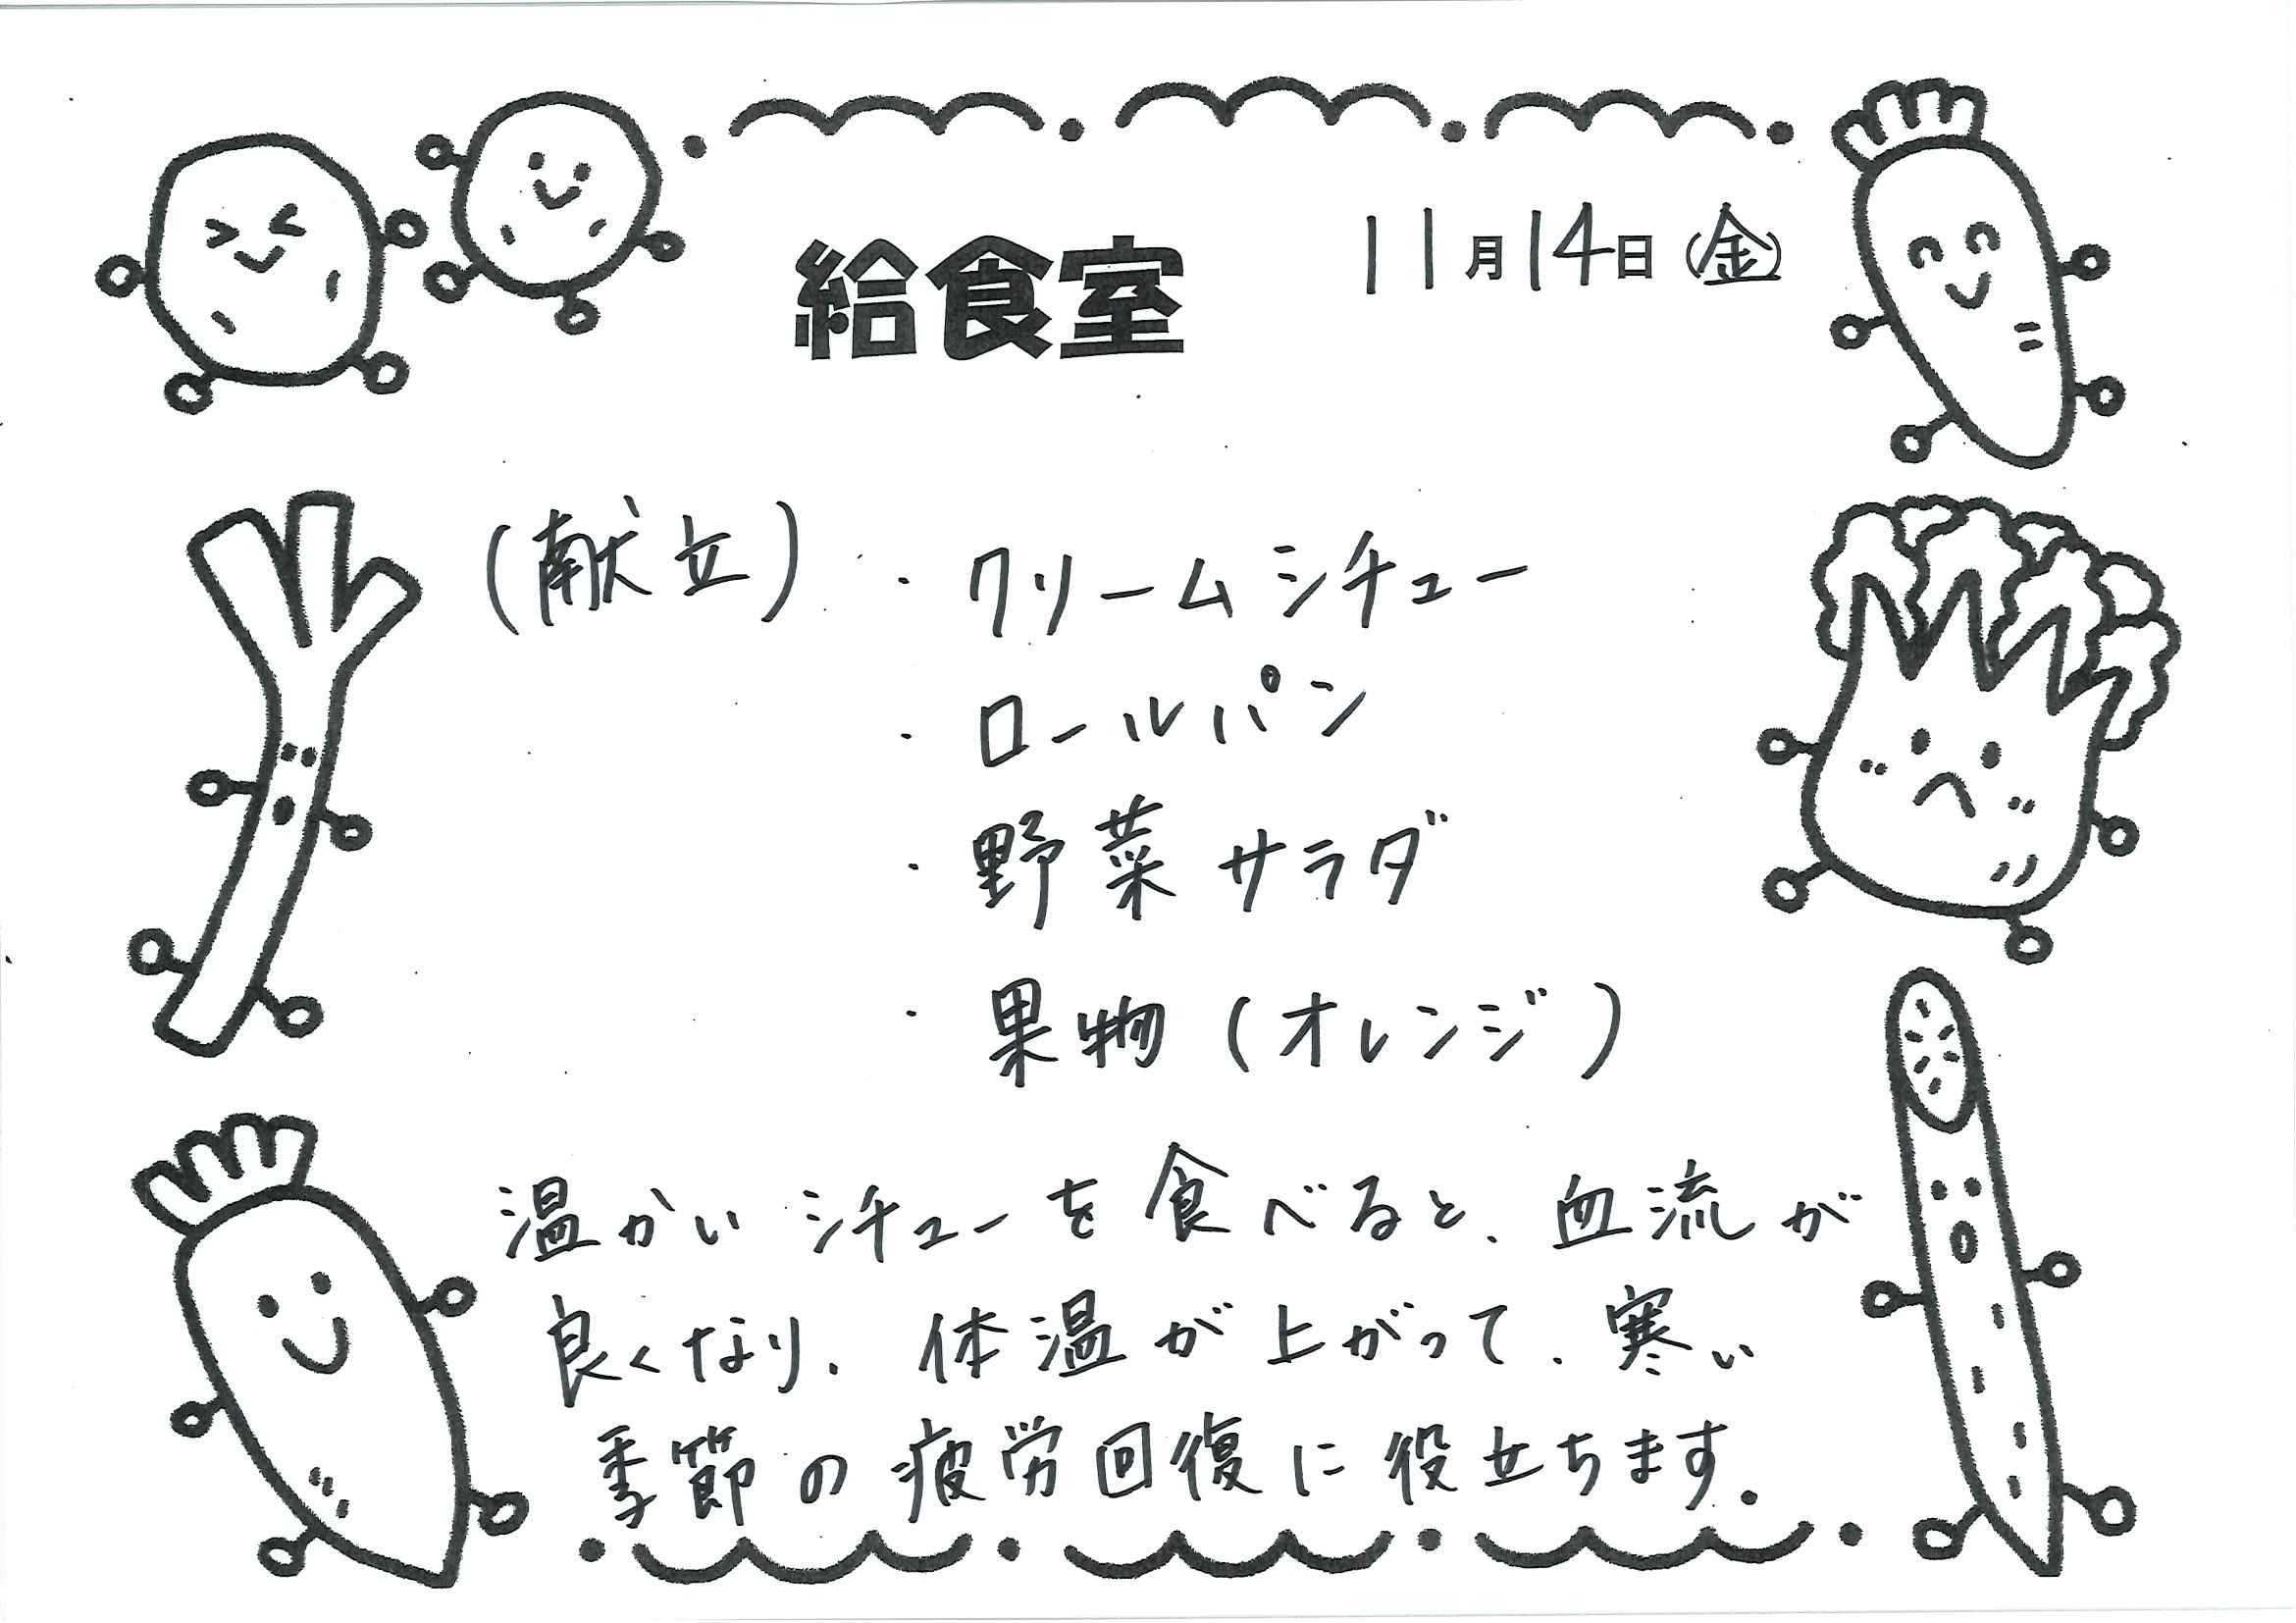 給食室
11月14日(金)
(献立)・クリームシチュー
・ロールパン
・野菜サラダ
・果物(オレンジ)
温かいシチューを食べると、血流が
良くなり、体温が上がって、寒い
季節の疲労回復に役立ちます。